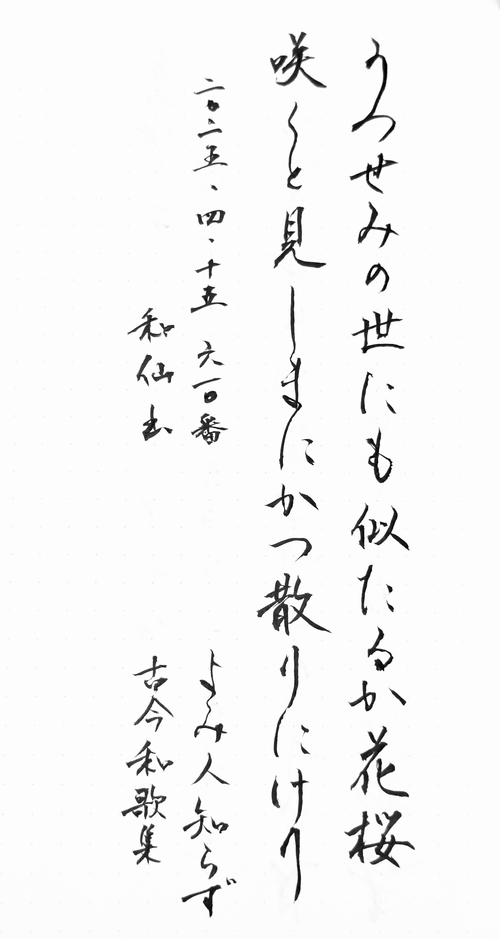 うつせみの世にも似たるか花桜
咲くと見しまにかつ散りにけり
二〇二五、四、十五 六一〇番
和仙書
よみ人知らず
古今和歌集